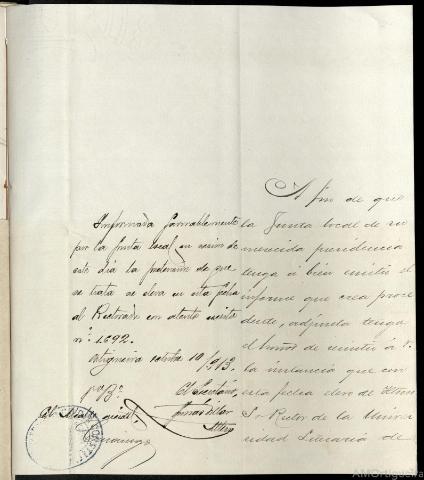 A fin de que
la Junta local de su
merecida presidencia
tenga á bien emitir el
informe que crea proce
dente, adjunta tengo
el honor de remitir á V.
la instancia que con
esta fecha elevo al
Sr. Rector de la Univer
sidad Literaria de
Informada favorablemente
por la Junta local, en sesión de
este día la pretensión de que
se trata se eleva en esta fecha
al Rectorado con atento escrito
n.º 1.692.
Ortigueira 10 1913.
El Secretario,
AMOrtigueira